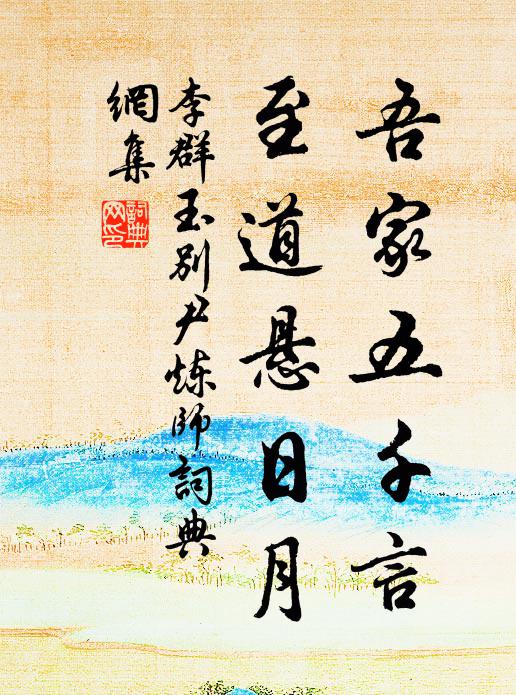 吾家五千言
至道悬日月
李群玉别尹炼师詞典
網集
詞典
网印